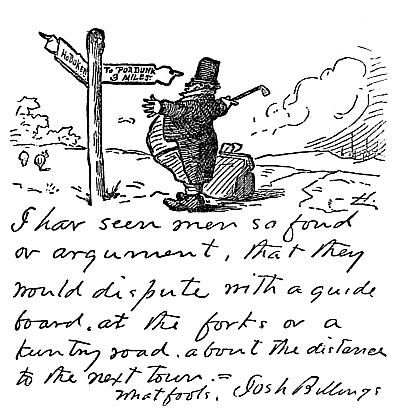 HOBOKEN
TO PODUNK
9 MILES.
I hav seen men so fond
ov argument, that they
would dispute with a guide
board, at the forks ov a
kuntry road, about the distance
to the next town. =
What fools. Josh Billings